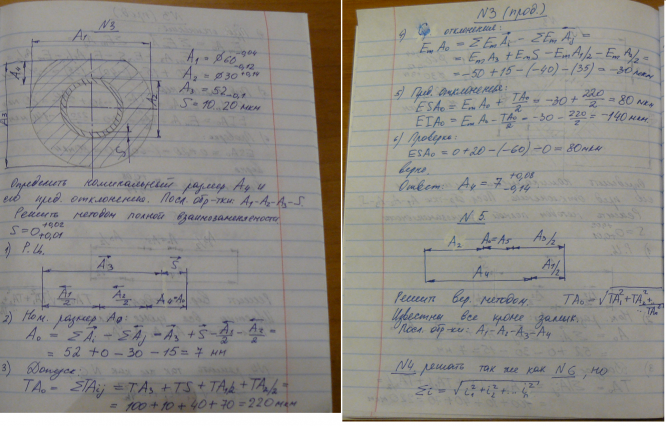 N3
A1
A1 = ⌀60 -0,04 -0,12
A2 = ⌀30 +0,14
A3 = 52 -0,1
S = 10..20 мкм
A4
A2
A3
S
Определить номинальный размер A4 и
его пред. отклонению. Посл. обр-тки: A1-A2-A3-S.
Решить методом полной взаимозаменяемости
S = 0 +0,02 +0,01
1) Р.Ц.
A3 S
A1/2 A2/2 A4=A0
2) Ном. размер A4:
A0 = ΣAi - ΣAj = A3 + S - A1/2 - A2/2 =
= 52 + 0 - 30 - 15 = 7 мм
3) Допуск:
TA0 = ΣTAij = TA3 + TS + TA1/2 + TA2/2 =
= 100 + 10 + 40 + 70 = 220 мкм
N3 (прод.)
4) Ср. отклонения:
EmA0 = ΣEmAi - ΣEmAj =
= EmA3 + EmS - EmA1/2 - EmA2/2 =
= -50 + 15 - (-40) - (35) = -30 мкм
5) Пред. отклонения:
ESA0 = EmA0 + TA0/2 = -30 + 220/2 = 80 мкм
EIA0 = EmA0 - TA0/2 = -30 - 220/2 = -140 мкм
6) Проверка:
ESA0 = 0 + 20 - (-60) - 0 = 80 мкм
верно
Ответ: A4 = 7 +0,08 -0,14
N5.
A2 A0=A5 A3/2
A4 A1/2
Решить вер. методом. TA0 = √TA1² + TA2² +
Известны все кроме замык.
Посл. обр-тки: A1-A2-A3-A4
N4 решать так же как N6, но
Σi = √i1² + i2² +